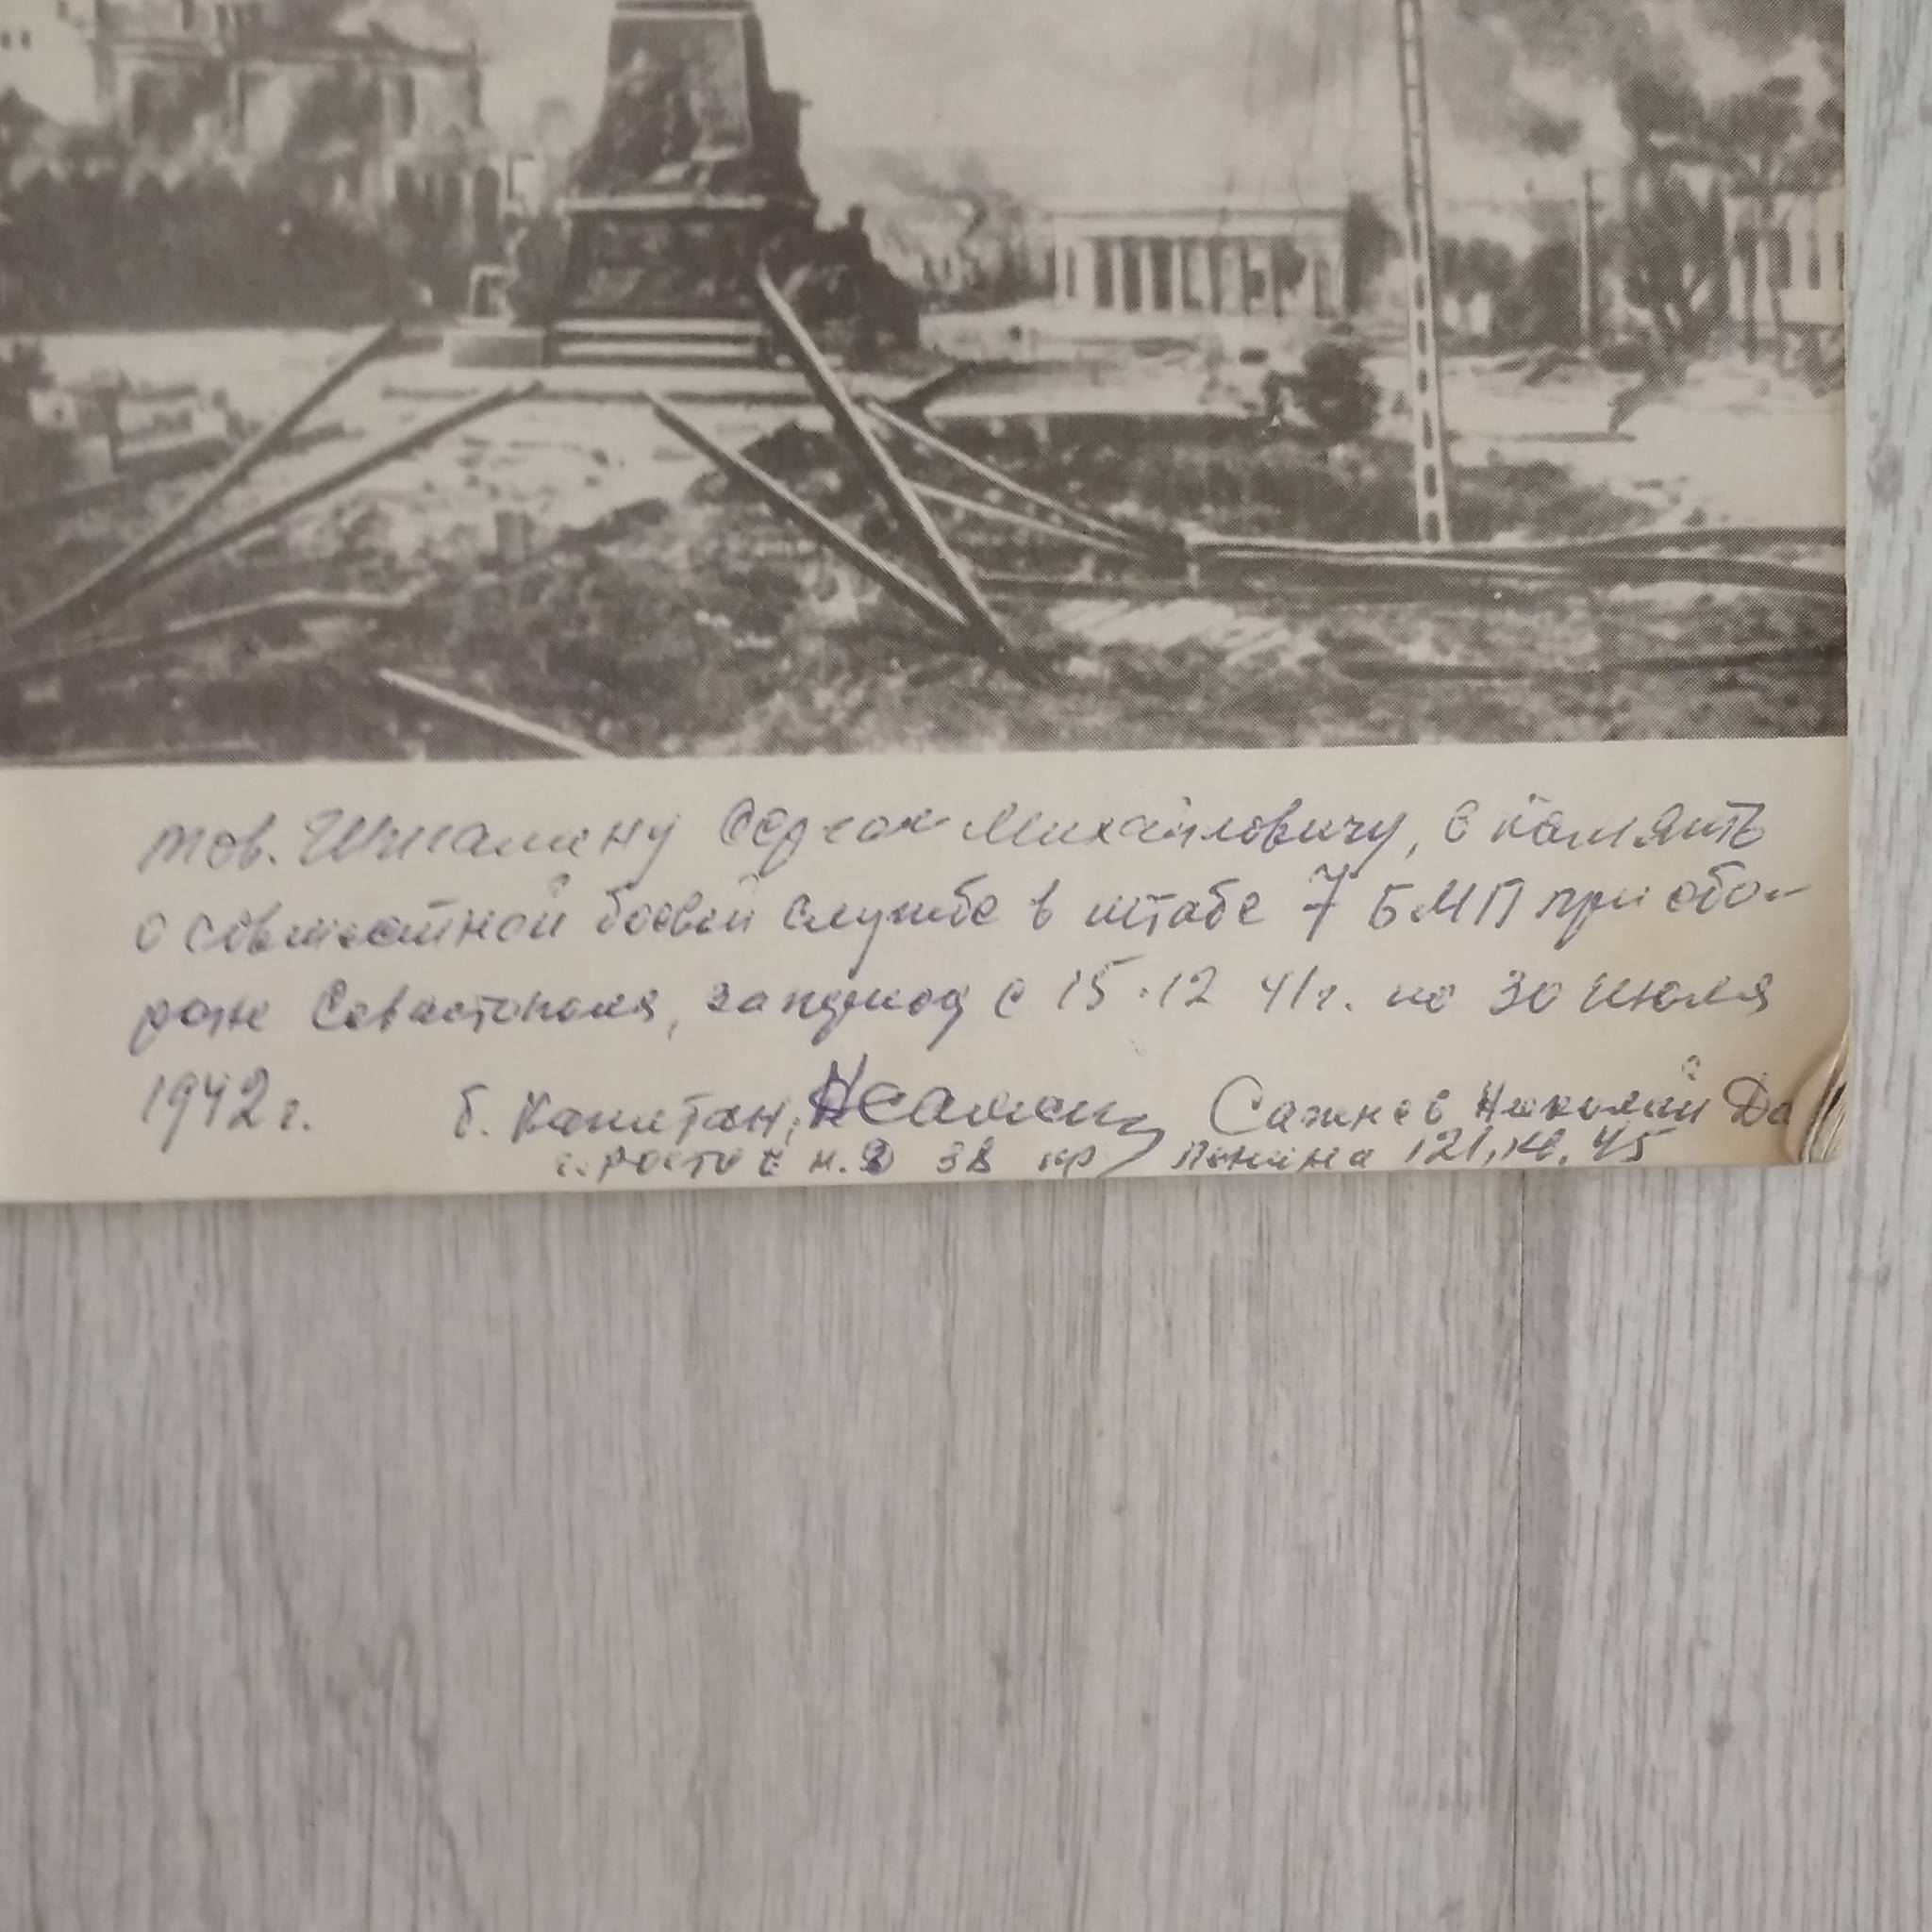 тов. Шигалину Сергею Михайловичу, в память
о совместной боевой службе в штабе 7 БМП при обо-
роне Севастополя, за период с 15.12 41г. по 30 июля
1942г. б. Капитан, Сажнев Николай
г. Ростов н.Д 38 пр Ленина 121, кв. 45